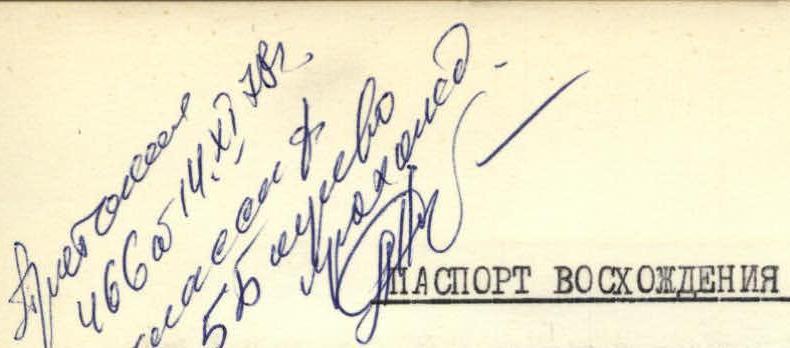 Протокол
466 от 14.XI 78г.
классиф
5Б
ПАСПОРТ ВОСХОЖДЕНИЯ